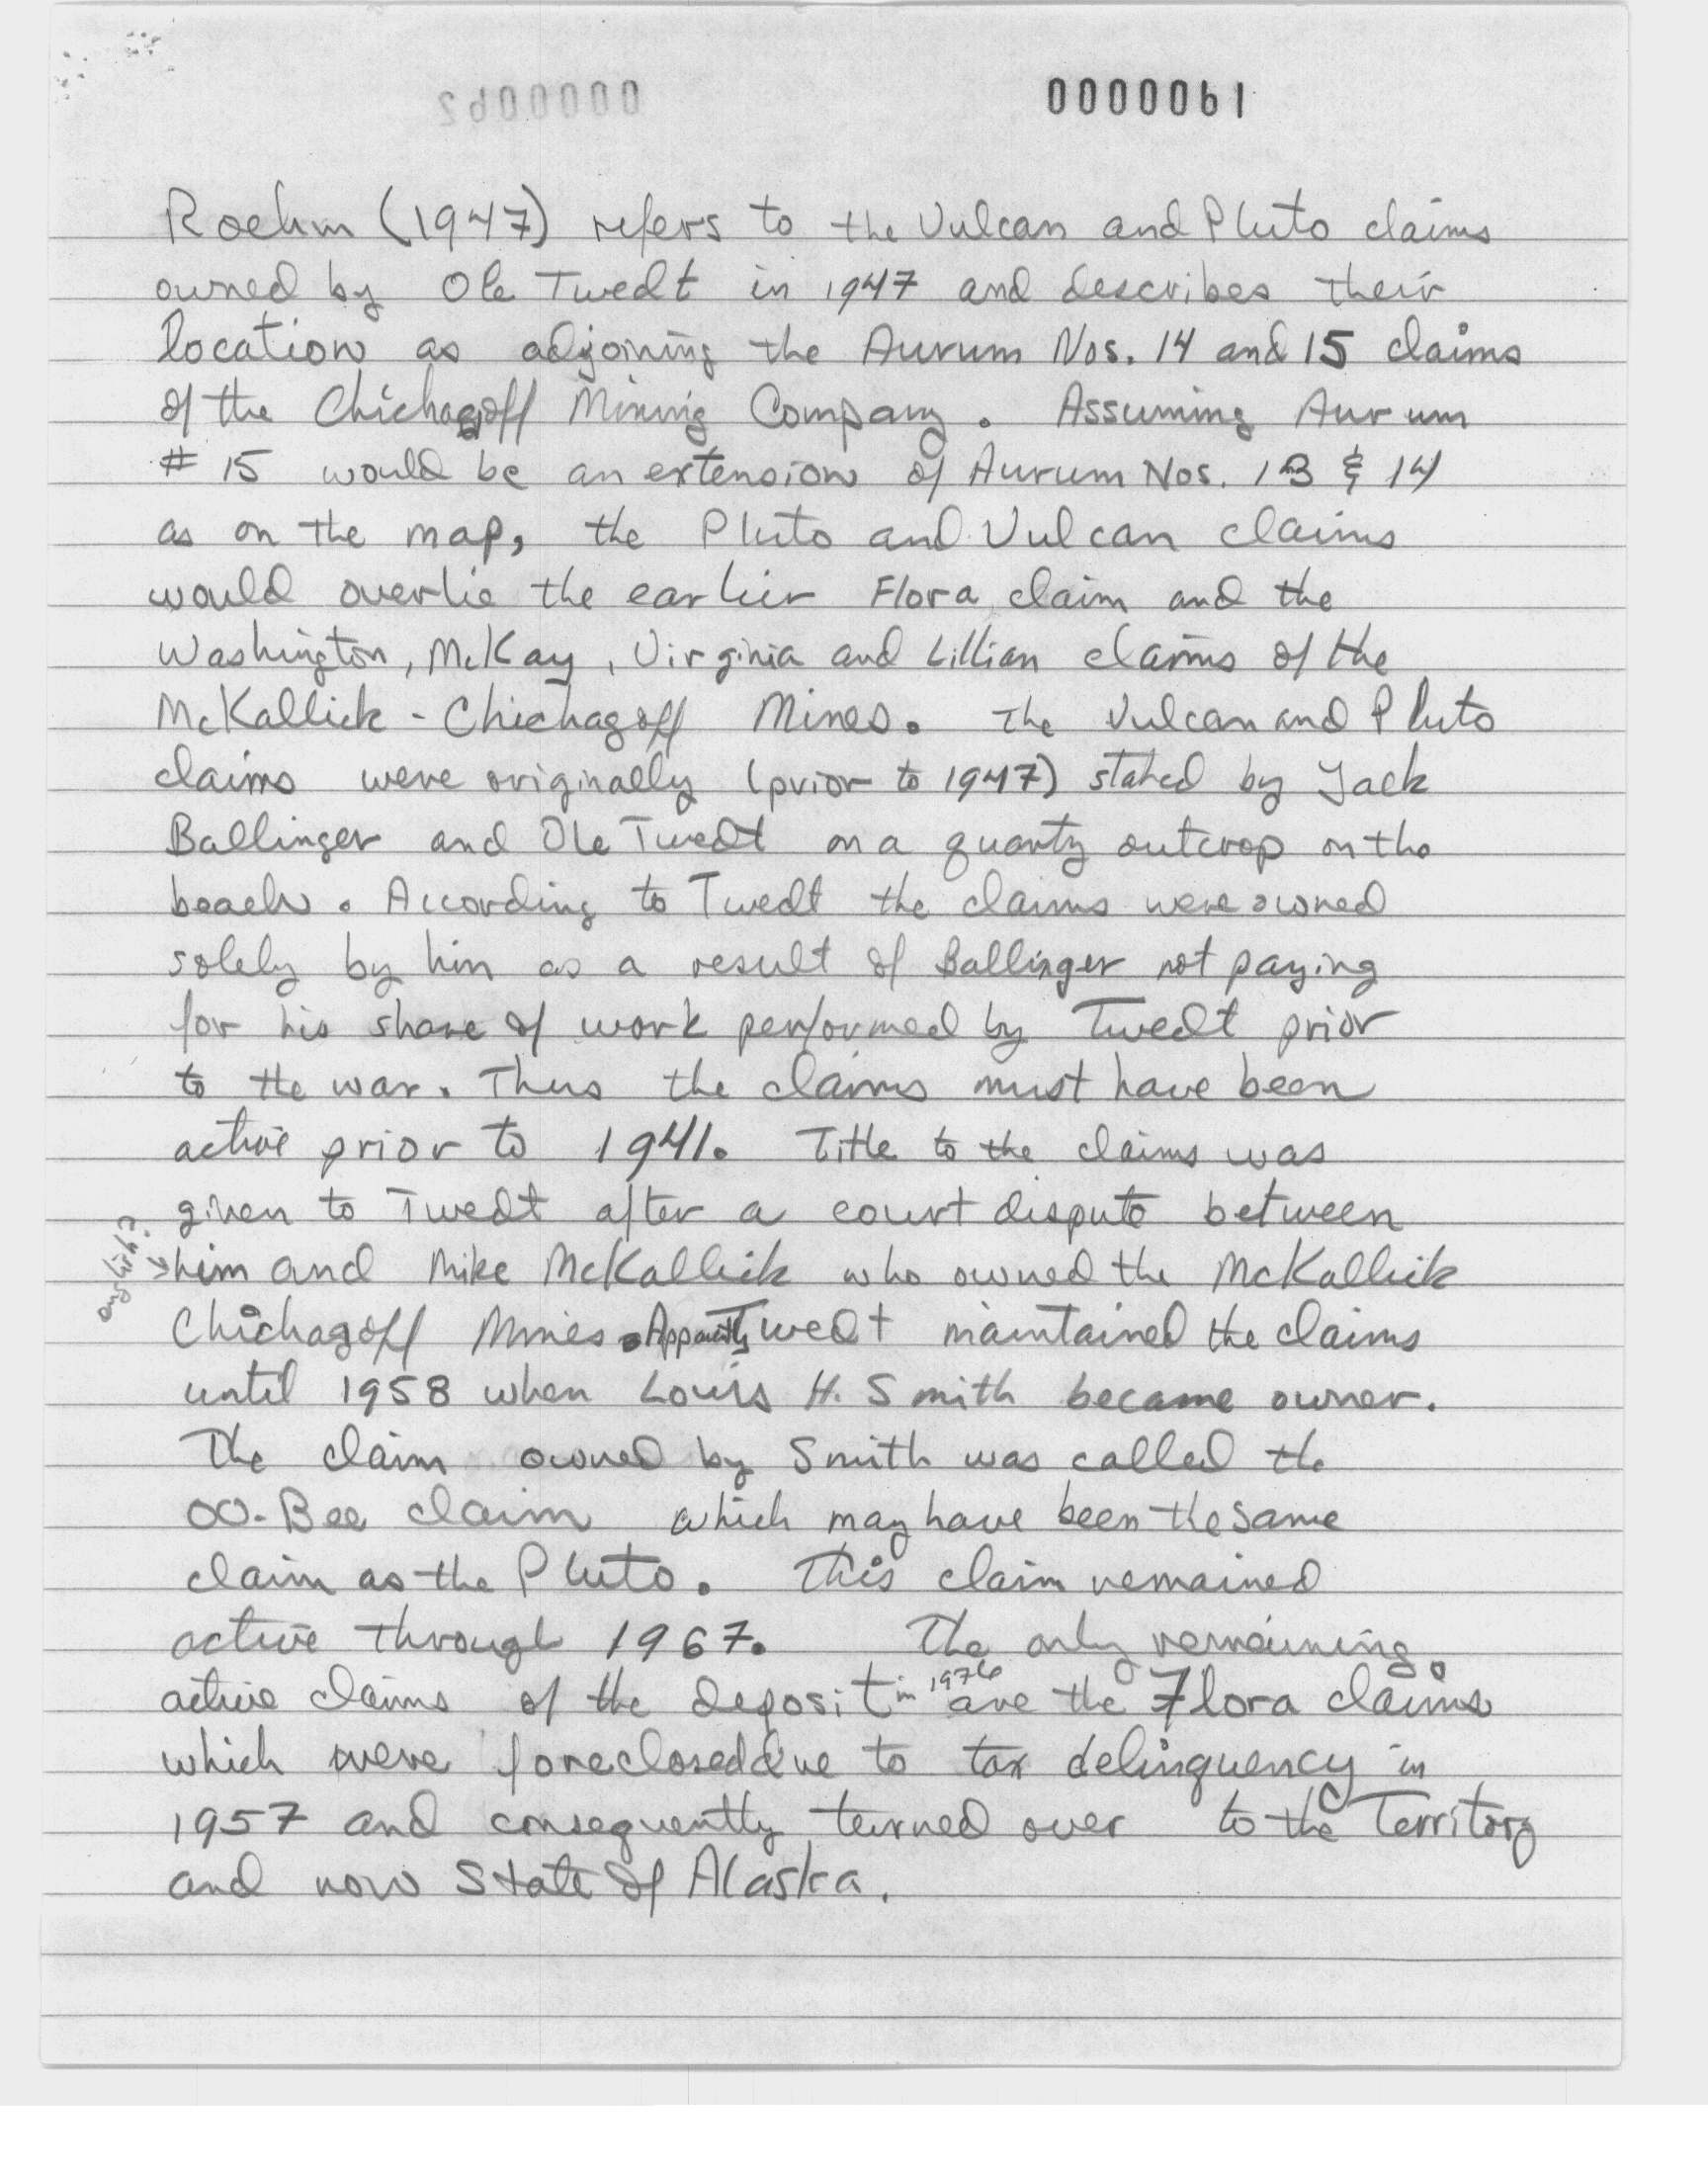 0000061
Roehm (1947) refers to the Vulcan and Pluto claims
owned by Ole Twedt in 1947 and describes their
location as adjoining the Aurum Nos. 14 and 15 claims
of the Chichagoff Mining Company. Assuming Aurum
# 15 would be an extension of Aurum Nos. 13 & 14
as on the map, the Pluto and Vulcan claims
would overlie the earlier Flora claim and the
Washington, McKay, Virginia and Lillian claims of the
McKallick - Chichagoff Mines. The Vulcan and Pluto
claims were originally (prior to 1947) staked by Jack
Ballinger and Ole Twedt on a quartz outcrop on the
beach. According to Twedt the claims were owned
solely by him as a result of Ballinger not paying
for his share of work performed by Twedt prior
to the war. Thus the claims must have been
active prior to 1941. Title to the claims was
given to Twedt after a court dispute between
english? → him and Mike McKallick who owned the McKallick
Chichagoff Mines. Apparently Twedt maintained the claims
until 1958 when Louis H. Smith became owner.
The claim owned by Smith was called the
OO-Bee claim which may have been the same
claim as the Pluto. This claim remained
active through 1967. The only remaining
active claims of the deposit in 1976 are the Flora claims
which were foreclosed due to tax delinquency in
1957 and consequently turned over to the Territory
and now State of Alaska.